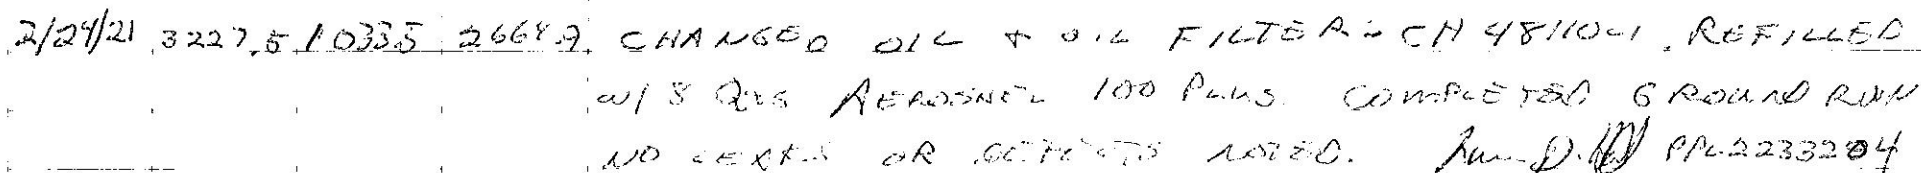 2/24/21 3227.5 1033.5 2664.9 CHANGED OIL + OIL FILTER: CH 48110-1. REFILLED
W/ 8 QTS AEROSHELL 100 PLUS. COMPLETED GROUND RUN
NO LEAKS OR DEFECTS NOTED. PPL 2233204